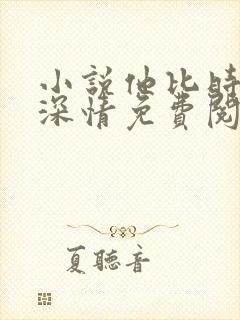 小說他比時
深情免費閱
夏聽音